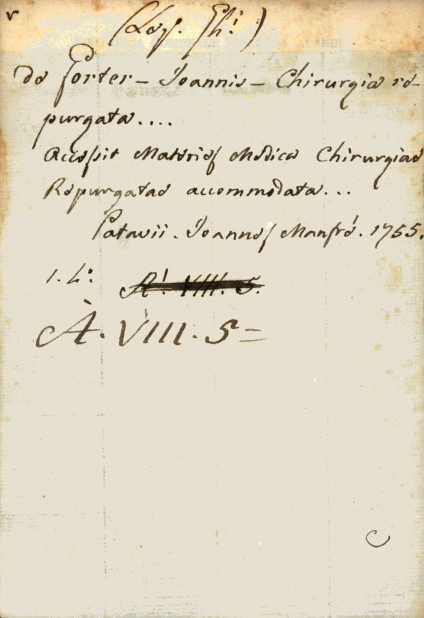 v
(Les. Fhi)
De Gorter - Joannis - Chirurgia re-
purgata....
Accessit Materies Medica Chirurgiae
Repurgatae accommodata...
Patavii. Joannes Manfré. 1755.
1. L:
A. VIII. 5.
À. VIII. 5=
C